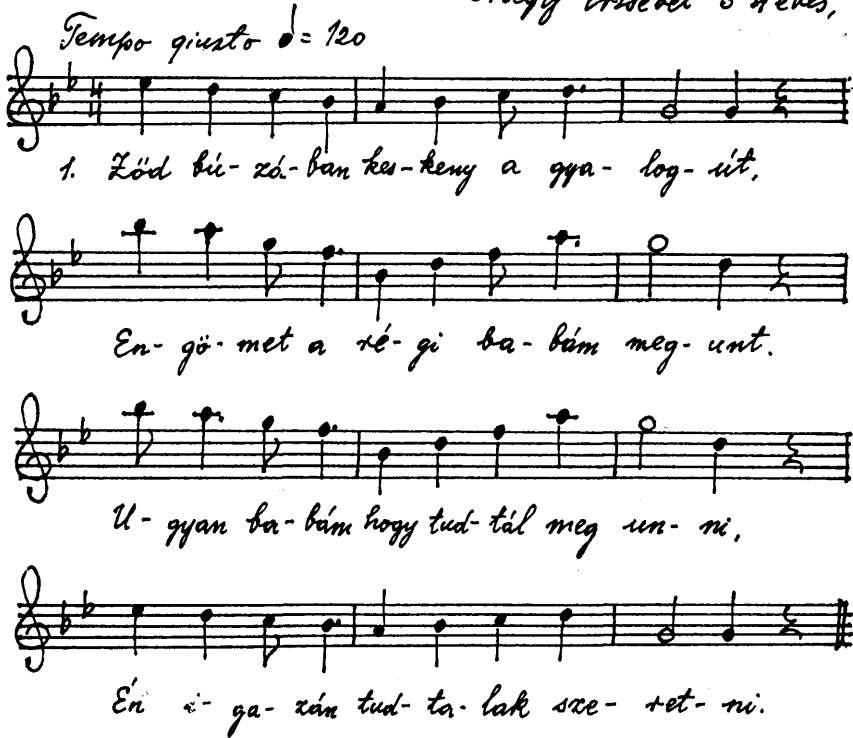 Tempo giusto ♩= 120
4
4
1. Zöd bú- zá- ban kes- keny a gya- log- út,
En- gö- met a ré- gi ba- bám meg- unt.
U- gyan ba- bám hogy tud- tál meg un- ni,
Én i- ga- zán tud- ta- lak sze- ret- ni.